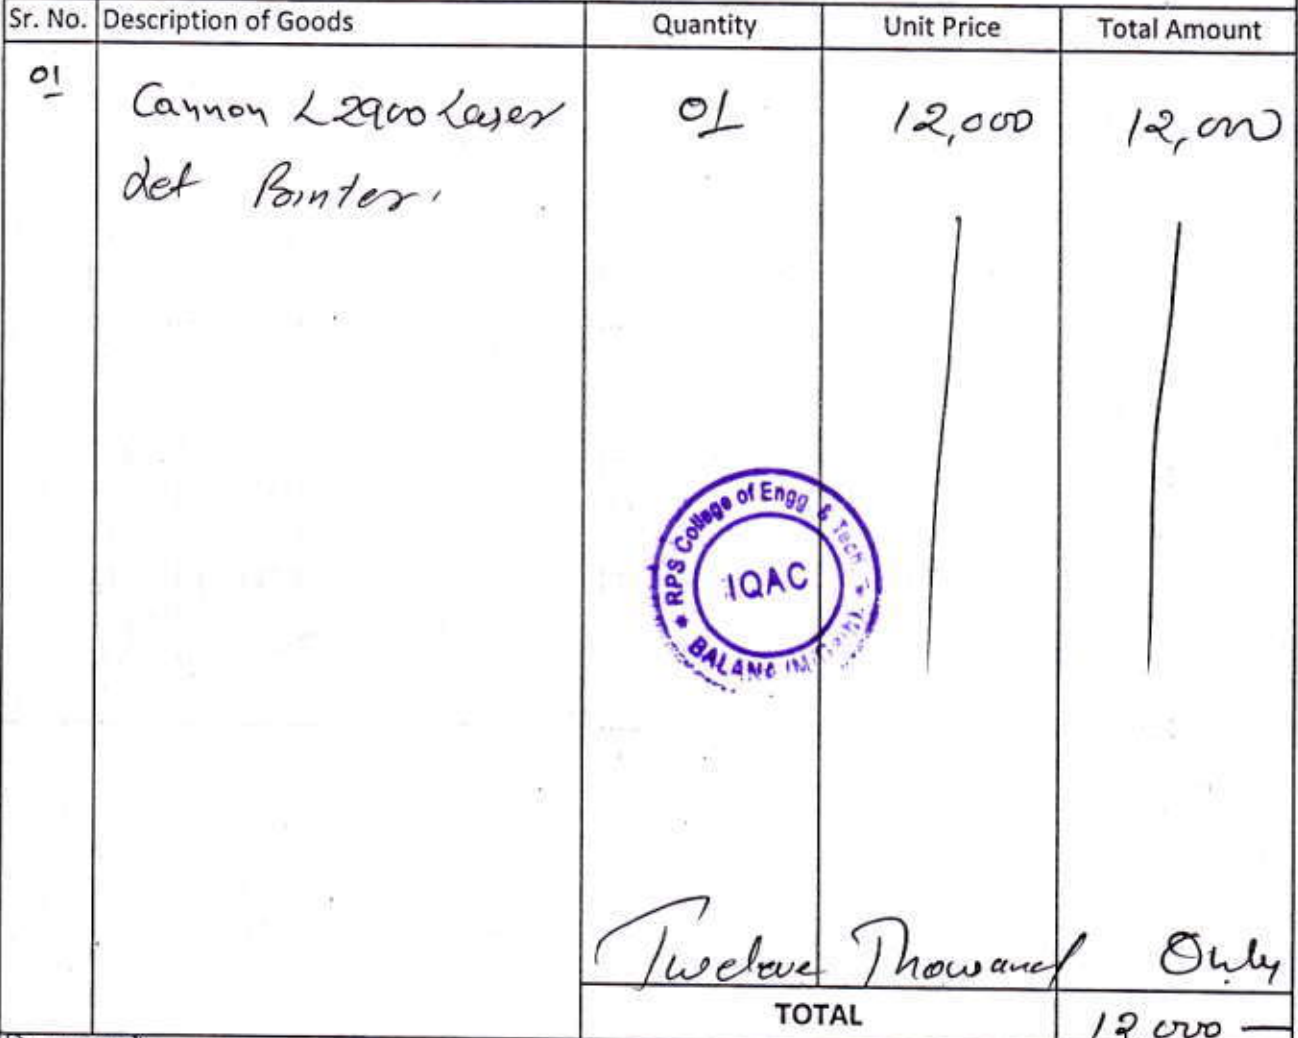 Sr. No. Description of Goods Quantity Unit Price Total Amount
01 Cannon L2900 Laser 01 12,000 12,000
Jet Printer.
RPS College of Engg & Tech
IQAC
BALANA
Twelve Thousand Only
TOTAL 12000 —